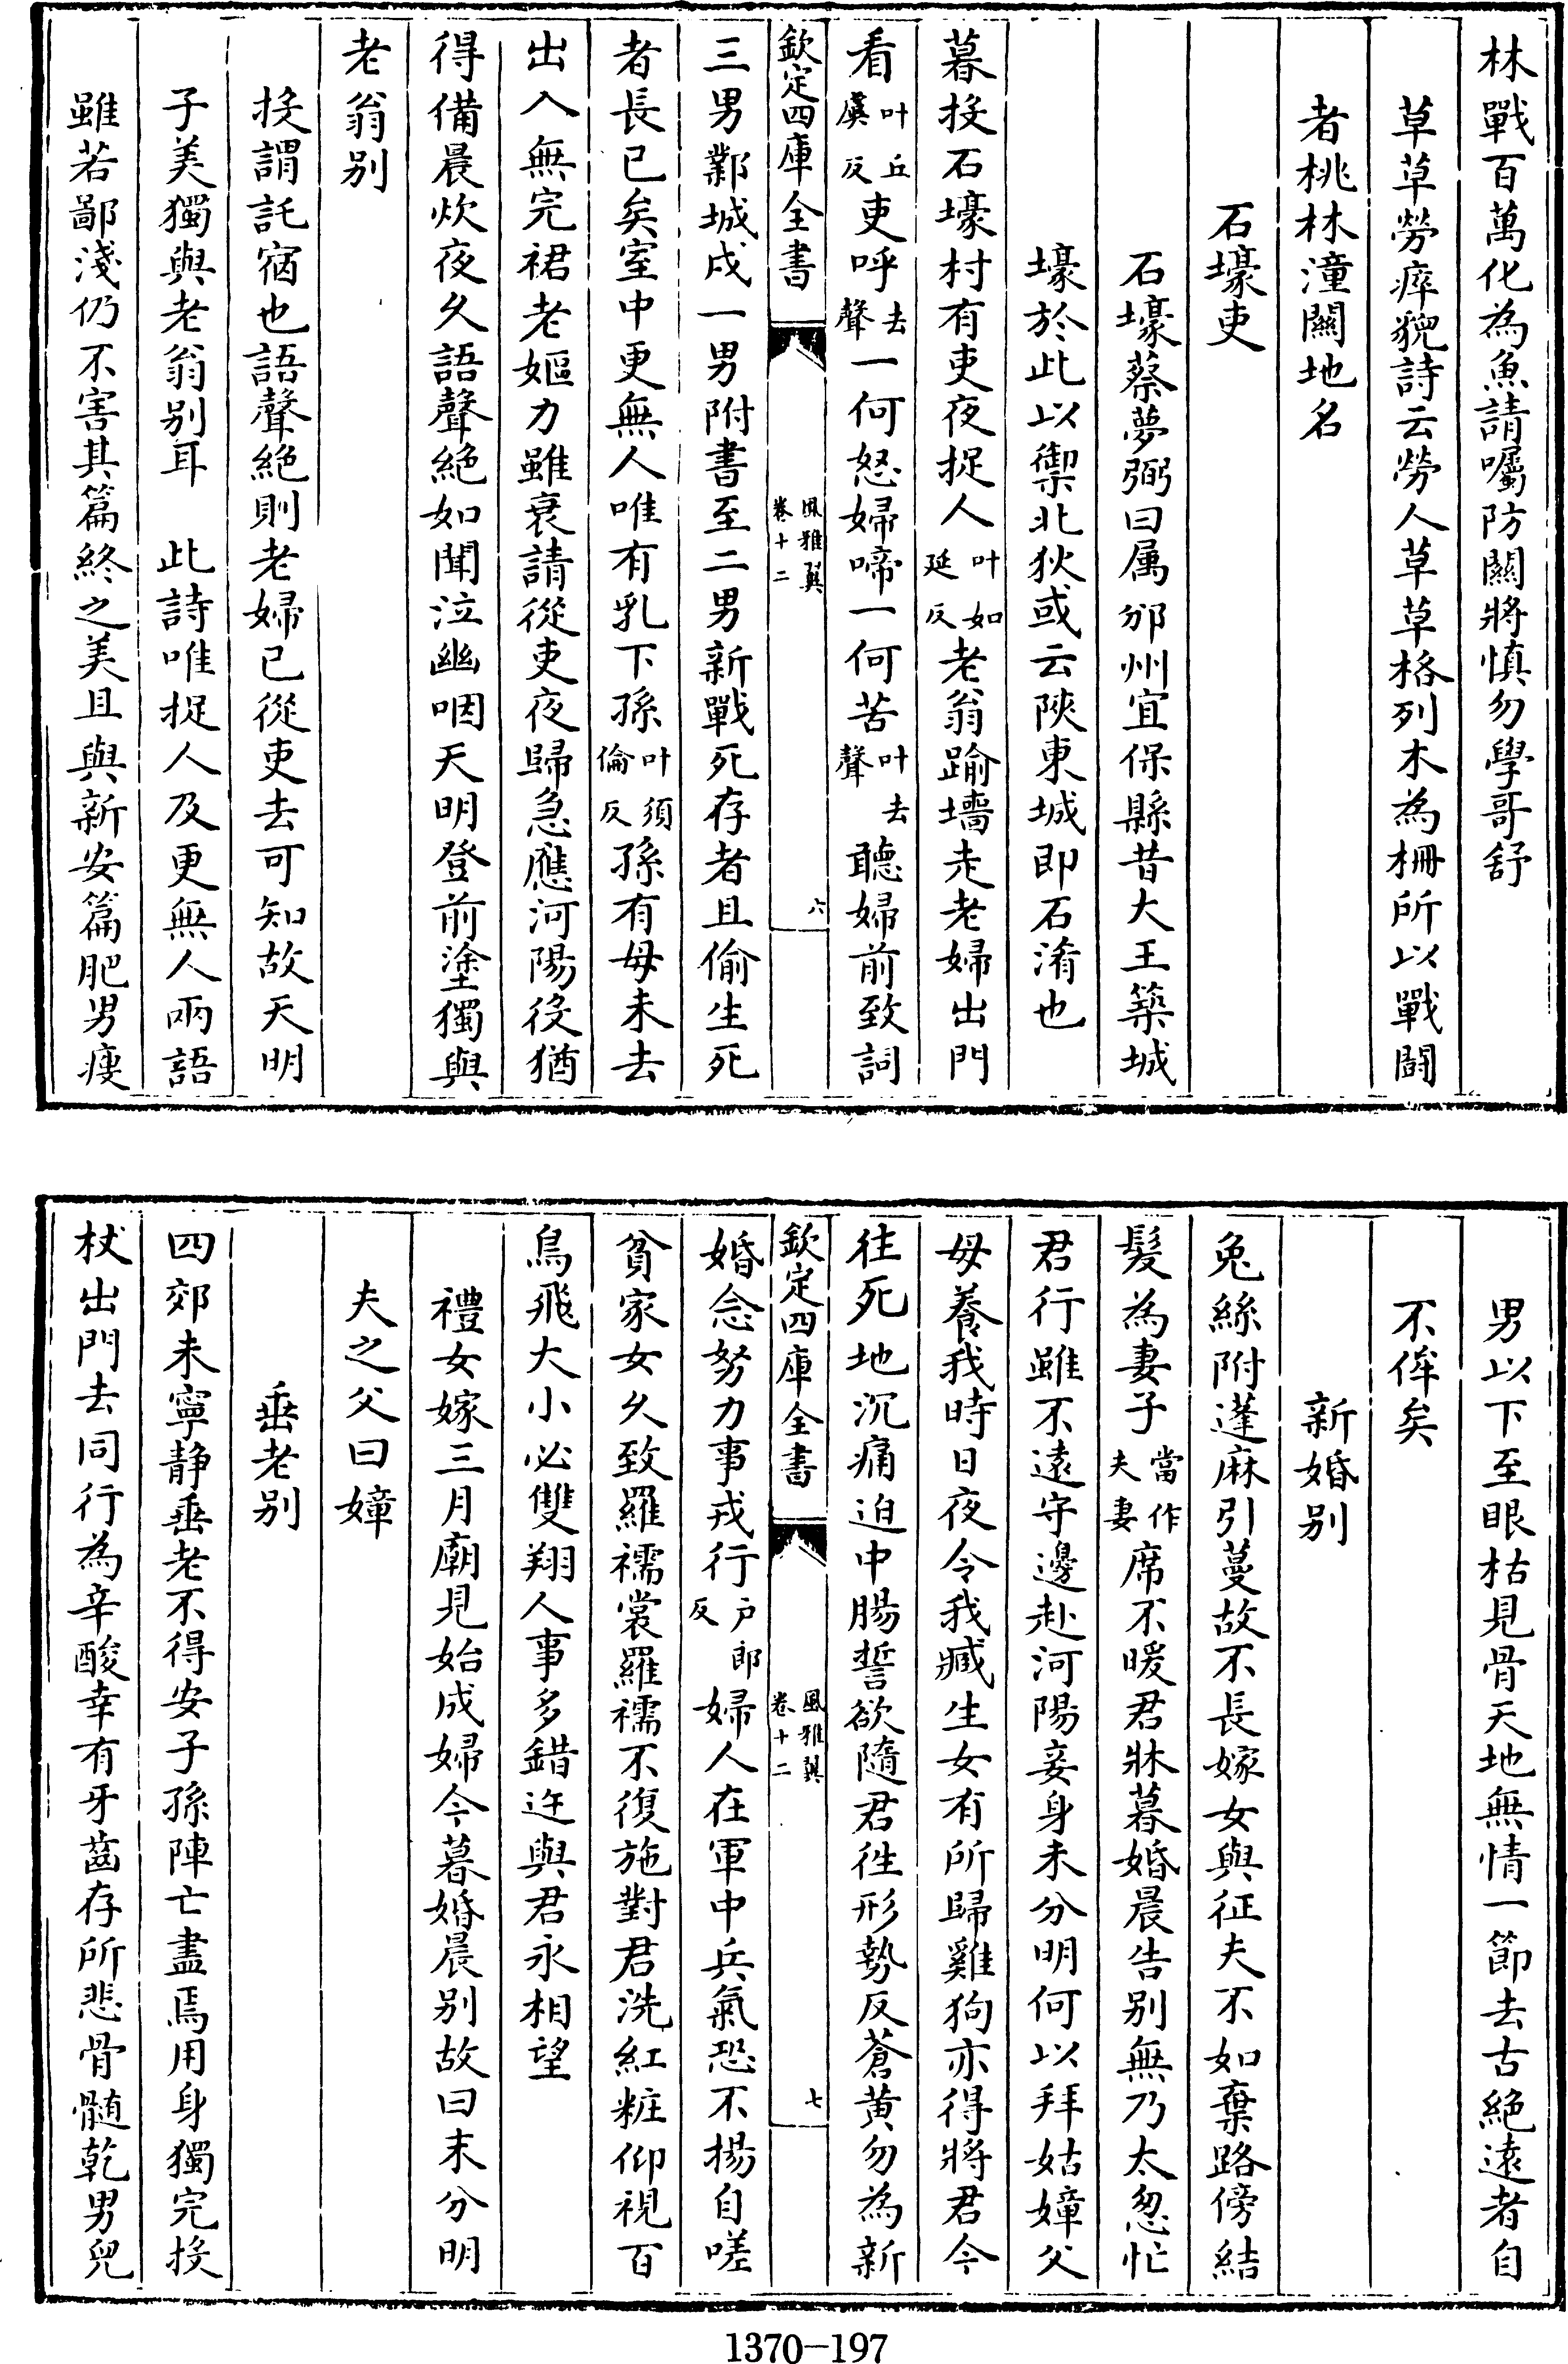 林戰百萬化為魚請囑防關將慎勿學哥舒
草草勞瘁貌詩云勞人草草格列木為柵所以戰鬭
者桃林潼關地名
石壕吏
石壕蔡夢弼曰属邠州宜保縣昔大王築城
壕於此以禦北狄或云陜東城即石淆也
暮投石壕村有吏夜捉人叶如延反老翁踰墻走老婦出門
看叶丘虞反吏呼去聲一何怒婦啼一何苦叶去聲聽婦前致詞
欽定四庫全書
風雅翼
卷十二
六
三男鄴城戍一男附書至二男新戰死存者且偷生死
者長已矣室中更無人唯有乳下孫叶須倫反孫有母未去
出入無完裙老嫗力雖衰請從吏夜歸急應河陽役猶
得備晨炊夜久語聲絶如聞泣幽咽天明登前塗獨與
老翁别
投謂託宿也語聲絶則老婦已從吏去可知故天明
子美獨與老翁别耳　此詩唯捉人及更無人兩語
雖若鄙淺仍不害其篇終之美且與新安篇肥男瘦
男以下至眼枯見骨天地無情一節去古絶遠者自
不侔矣
新婚别
兔絲附蓬麻引蔓故不長嫁女與征夫不如棄路傍結
髮為妻子當作夫妻席不暖君牀暮婚晨告别無乃太怱忙
君行雖不遠守邊赴河陽妾身未分明何以拜姑嫜父
母養我時日夜令我臧生女有所歸雞狗亦得將君今
往死地沉痛迫中腸誓欲隨君徃形勢反蒼黄勿為新
欽定四庫全書
風雅翼
卷十二
七
婚念努力事戎行户郎反婦人在軍中兵氣恐不揚自嗟
貧家女久致羅襦裳羅襦不復施對君洗紅粧仰視百
鳥飛大小必雙翔人事多錯迕與君永相望
禮女嫁三月廟見始成婦今暮婚晨别故曰未分明
夫之父曰嫜
垂老别
四郊未寧静垂老不得安子孫陣亡盡焉用身獨完投
杖出門去同行為辛酸幸有牙齒存所悲骨髄乾男兒
1370-197